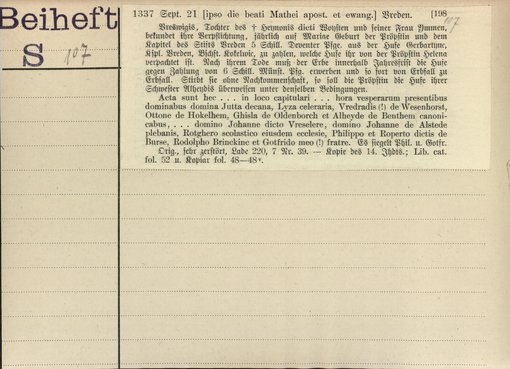 Beiheft
S 107
1337 Sept. 21 [ipso die beati Mathei apost. et ewang.] Vreden. [198
107
Vreswigis, Tochter des † Heymonis dicti Woysten und seiner Frau Ymmen,
bekundet ihre Verpflichtung, jährlich auf Mariae Geburt der Pröpstin und dem
Kapitel des Stifts Vreden 5 Schill. Deventer Pfge. aus der Hufe Gerbartyne,
Kspl. Vreden, Bschft. Kokelwic, zu zahlen, welche Hufe ihr von der Pröpstin Helena
verpachtet ist. Nach ihrem Tode muß der Erbe innerhalb Jahresfrist die Hufe
gegen Zahlung von 6 Schill. Münst. Pfg. erwerben und so fort von Erbfall zu
Erbfall. Stirbt sie ohne Nachkommenschaft, so soll die Pröpstin die Hufe ihrer
Schwester Alheydis überweisen unter denselben Bedingungen.
Acta sunt hec . . . in loco capitulari . . . hora vesperarum presentibus
dominabus domina Jutta decana, Lyza celeraria, Vredradis (!) de Wesenhorst,
Ottone de Hokelhem, Ghisla de Oldenborch et Alheyde de Benthem canoni-
cabus, . . . domino Johanne dicto Vreselere, domino Johanne de Alstede
plebanis, Rotghero scolastico eiusdem ecclesie, Philippo et Roperto dictis de
Burse, Rodolpho Brinckine et Gotfrido meo (!) fratre. Es siegelt Phil. u. Gotfr.
Orig., sehr zerstört, Lade 220, 7 Nr. 39. — Kopie des 14. Jhdts.; Lib. cat.
fol. 52 u. Kopiar fol. 48—48v.